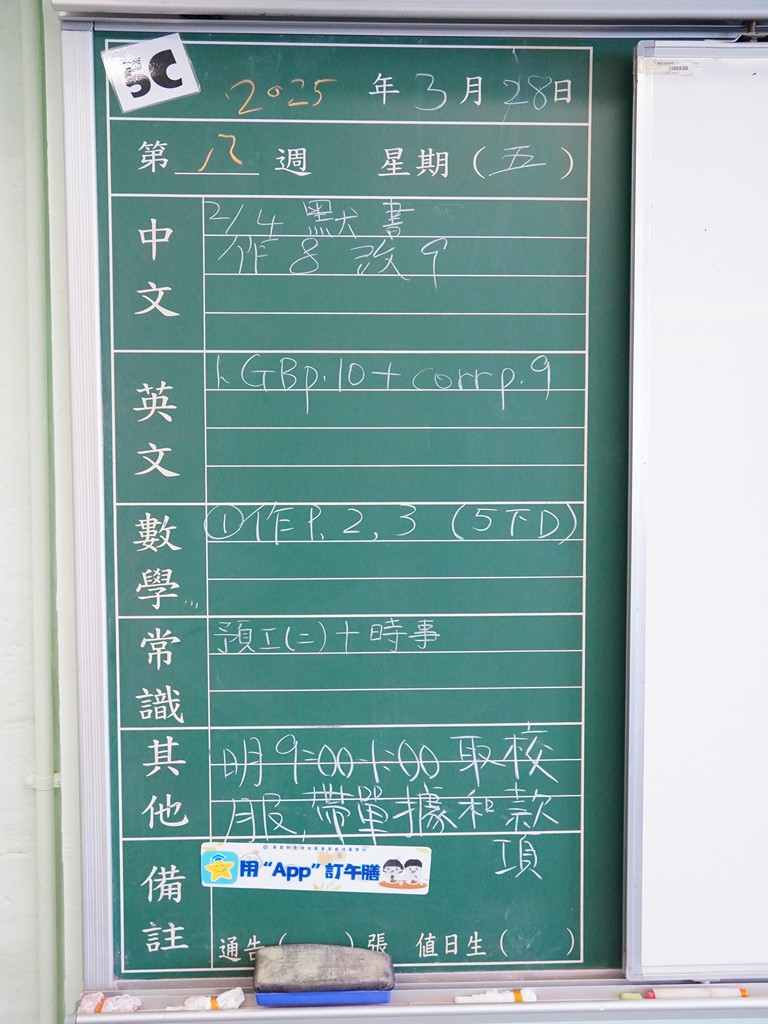 5C
2025 年 3 月 28 日
第 八 週 星期（五）
中文
2/4 默書
作8 改9
英文
1. GBp.10 + corr p.9
數學
①作P.2,3 (5下D)
常識
預工(二)+時事
其他
明9:00-1:00 取校
服,帶單據和款
項
備註
用“App”訂午膳
通告（ ）張 值日生（ ）